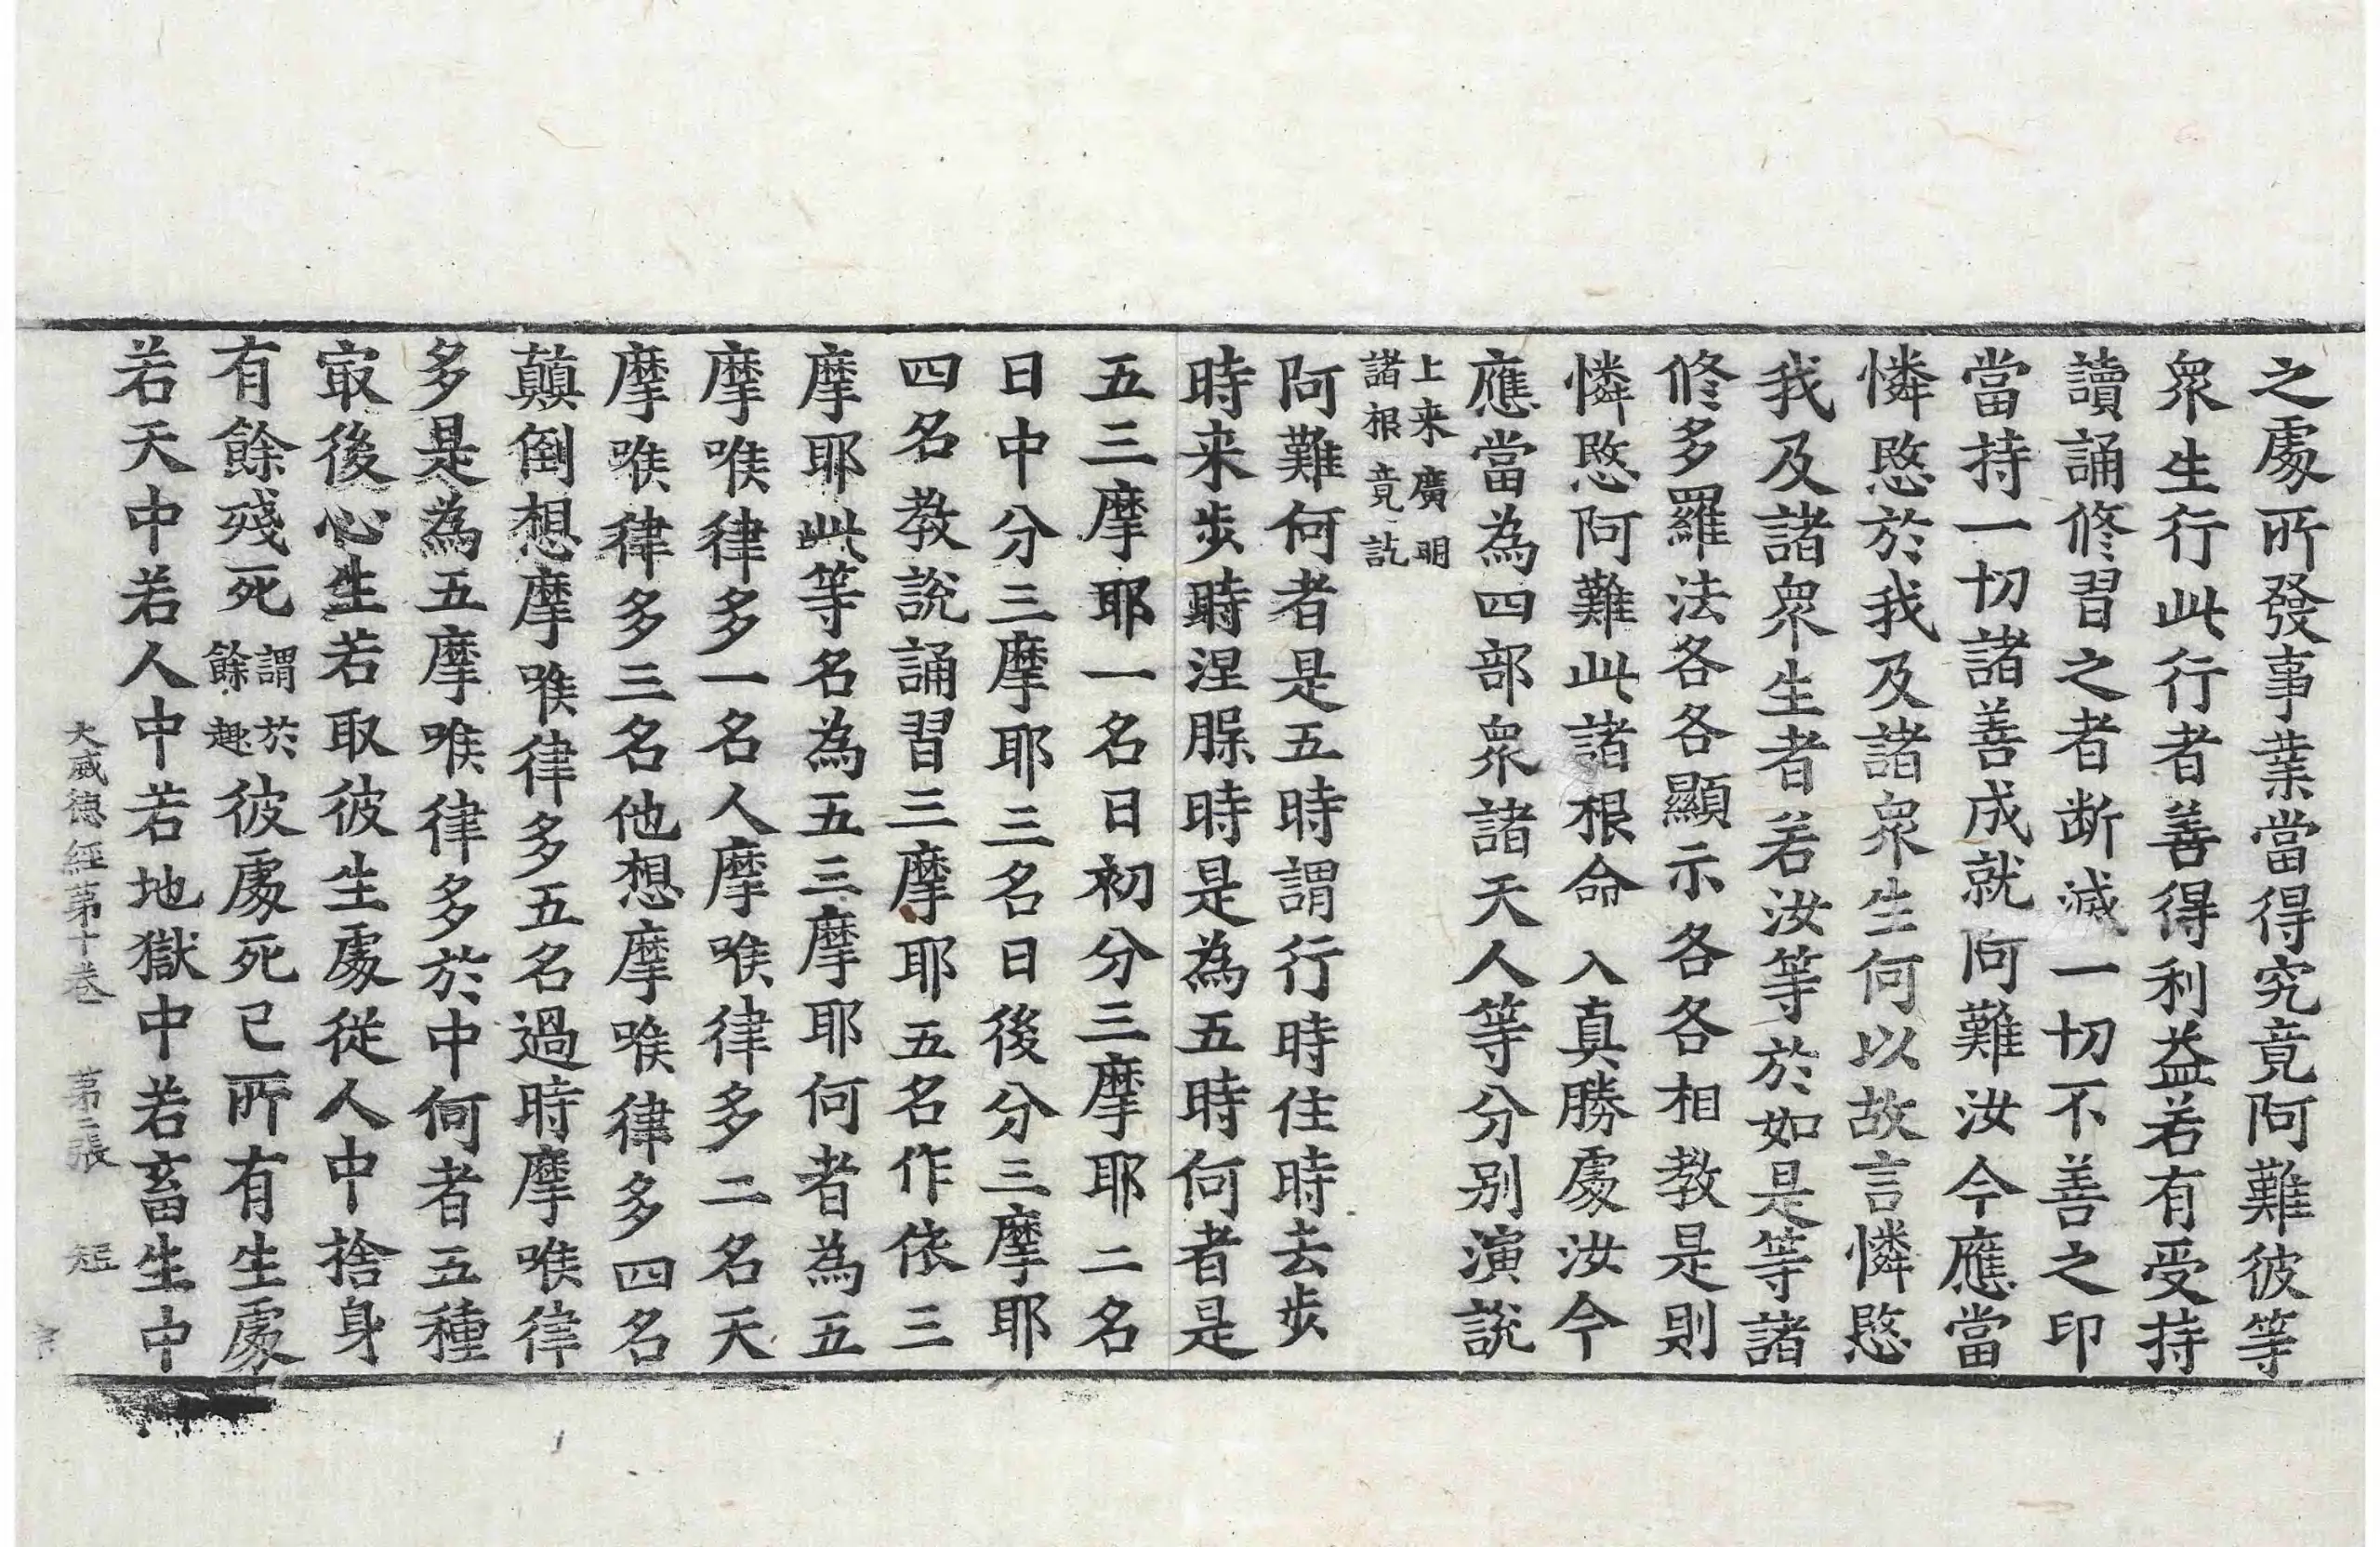 之處所發事業當得究竟阿難彼等
衆生行此行者善得利益若有受持
讀誦修習之者断滅一切不善之印
當持一切諸善成就阿難汝今應當
憐愍於我及諸衆生何以故言憐愍
我及諸衆生者若汝等於如是等諸
修多羅法各各顯示各各相教是則
憐愍阿難此諸根命入真勝處汝今
應當為四部衆諸天人等分别演說
上来廣明
諸根竟訖
阿難何者是五時謂行時住時去步
時来步時涅脲時是為五時何者是
五三摩耶一名日初分三摩耶二名
日中分三摩耶三名日後分三摩耶
四名教說誦習三摩耶五名作依三
摩耶此等名為五三摩耶何者為五
摩㗋律多一名人摩㗋律多二名天
摩㗋律多三名他想摩㗋律多四名
顛倒想摩㗋律多五名過時摩㗋律
多是為五摩㗋律多於中何者五種
㝡後心生若取彼生處從人中捨身
有餘殘死謂於餘趣彼處死已所有生處
若天中若人中若地獄中若畜生中
大威德經第十卷 第二張 短